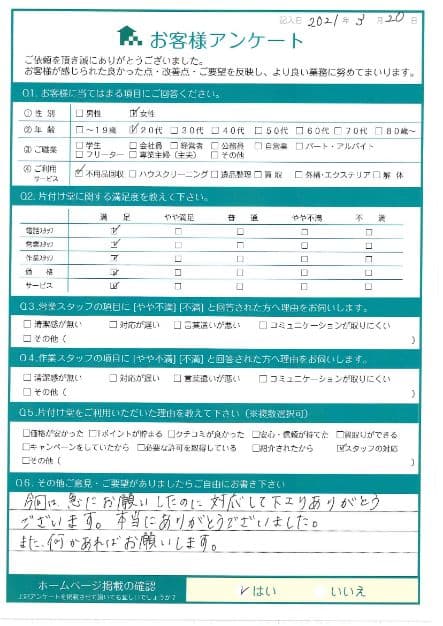 記入日 2021年 3月 20日
お客様アンケート
ご依頼を頂き誠にありがとうございました。
お客様が感じられた良かった点・改善点・ご要望を反映し、より良い業務に努めてまいります。
Q1. お客様に当てはまる項目にご回答ください。
① 性 別 □男性 ☑女性
② 年 齢 □～19歳 ☑20代 □30代 □40代 □50代 □60代 □70代 □80歳～
③ ご職業 □学生 □会社員 □経営者 □公務員 □自営業 □パート・アルバイト
□フリーター □専業主婦（主夫） □その他
④ ご利用サービス ☑不用品回収 □ハウスクリーニング □遺品整理 □買 取 □外構・エクステリア □解 体
Q2. 片付け堂に関する満足度を教えて下さい。
満 足 やや満足 普 通 やや不満 不 満
電話スタッフ ☑ □ □ □ □
営業スタッフ ☑ □ □ □ □
作業スタッフ ☑ □ □ □ □
価 格 ☑ □ □ □ □
サービス ☑ □ □ □ □
Q3. 営業スタッフの項目に [やや不満] [不満] と回答された方へ理由をお伺いします。
□清潔感が無い □対応が遅い □言葉遣いが悪い □コミュニケーションが取りにくい
□その他（ ）
Q4. 作業スタッフの項目に [やや不満] [不満] と回答された方へ理由をお伺いします。
□清潔感が無い □対応が遅い □言葉遣いが悪い □コミュニケーションが取りにくい
□その他（ ）
Q5. 片付け堂をご利用いただいた理由を教えて下さい（※複数選択可）
□価格が安かった □ポイントが貯まる □クチコミが良かった □安心・信頼が持てた □買取りができる
□キャンペーンをしていたから □必要な許可を取得している □紹介されたから ☑スタッフの対応
□その他（ ）
Q6. その他ご意見・ご要望がありましたらご自由にお書き下さい
今回は、急にお願いしたのに対応して下さりありがとう
ございます。本当にありがとうございました。
また、何かあればお願いします。
ホームページ掲載の確認 ☑はい □いいえ
上記アンケートを掲載させて頂いても宜しいでしょうか？